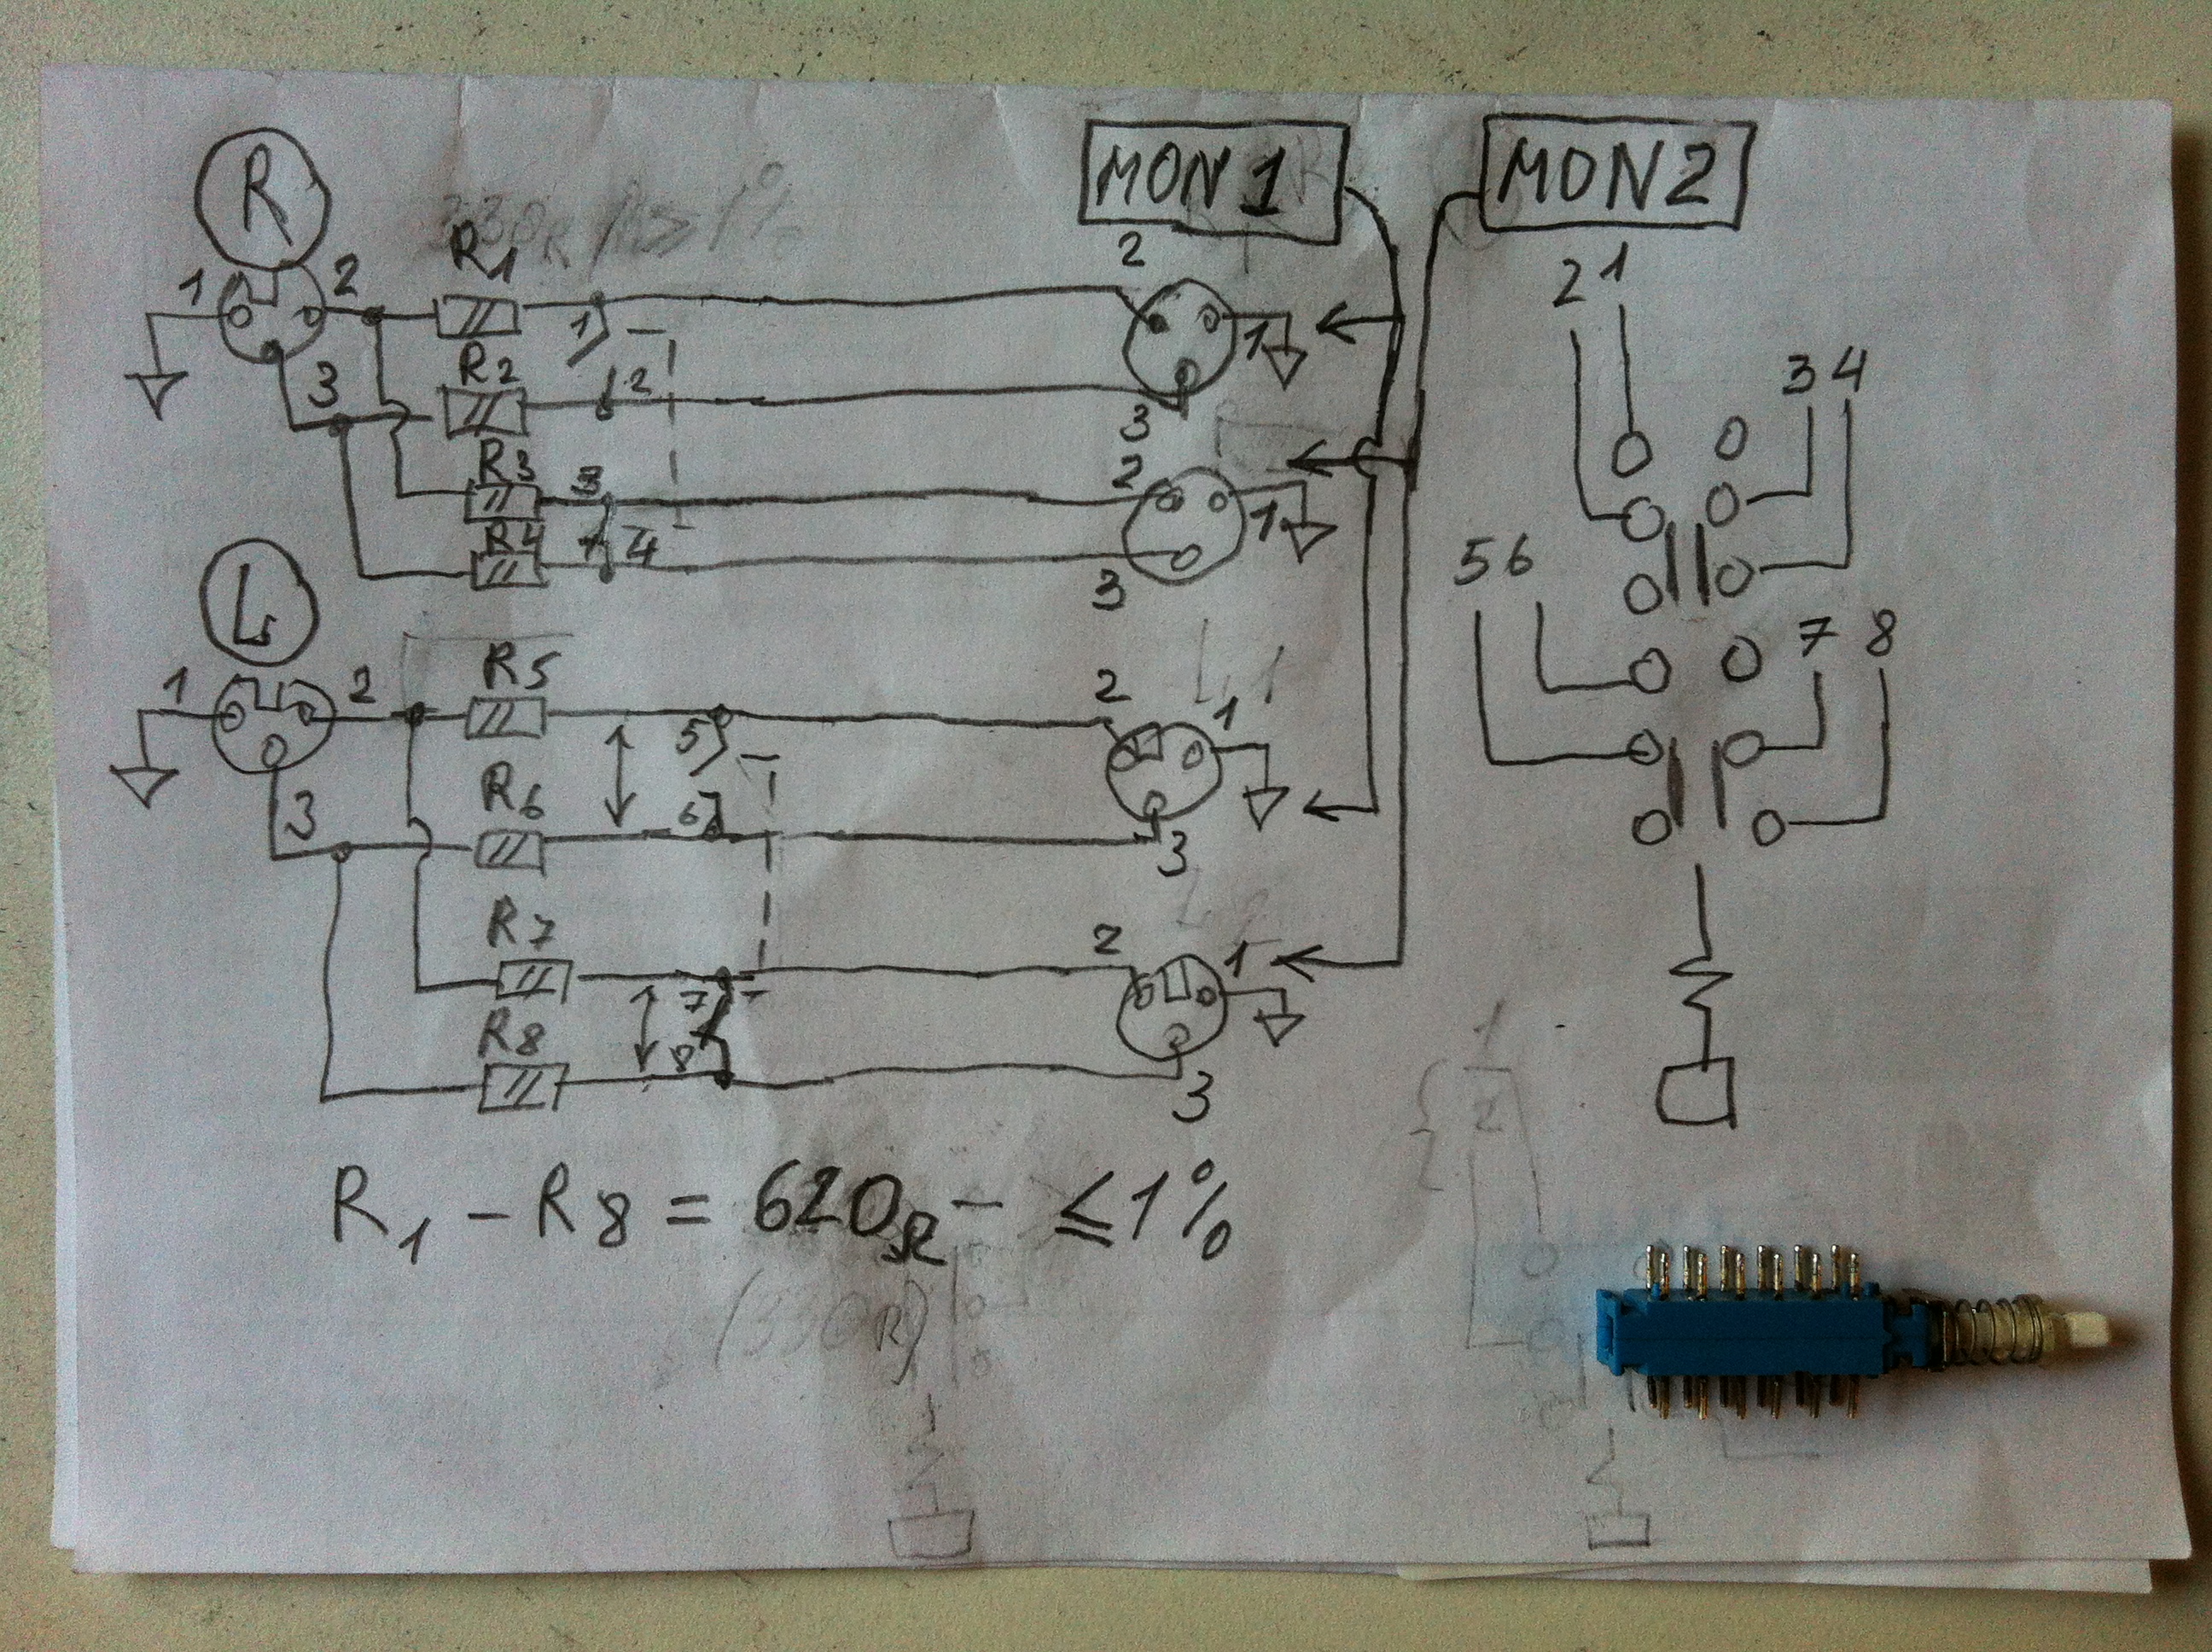 R
MON 1
MON 2
330R
1%
R1
1
2
2
1
2 1
1
R2
2
3
3 4
3
R3
3
2
1
R4
4
3
5 6
L
R5
7 8
1
2
5
2
1
R6
6
3
3
R7
7
2
1
R8
8
3
R1 - R8 = 620R - ≤1%
(330R)
1
2
2